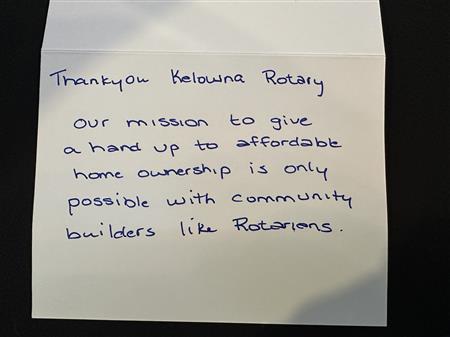 Thankyou Kelowna Rotary
our mission to give
a hand up to affordable
home ownership is only
possible with community
builders like Rotariens.